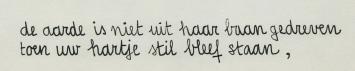 de aarde is niet uit haar baan gedreven
toen uw hartje stil bleef staan,